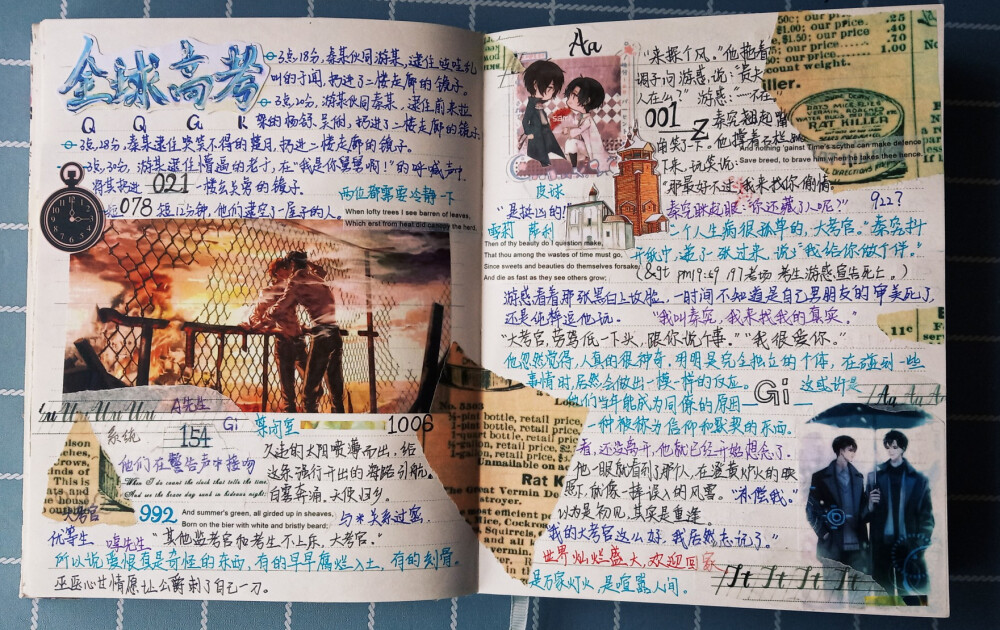 全球高考
3点18分，秦某伙同游某，逮住哎哇乱
叫的于闻，扔进了二楼走廊的镜子。
3点20分，游某伙同秦某，逮住前来拉
架的杨舒、吴俐，扔进了二楼走廊的镜子。
Q Q G K
3点28分，秦某逮住哭笑不得的楚月，扔进二楼走廊的镜子。
3点30分，游某逮住懵逼的老于，在“我是你舅舅啊！”的呼喊声中
将其扔进 021 一楼
的镜子。
078 短12分钟，他们逮完了一屋子的人。
两位都需要冷静一下
When lofty trees I see barren of leaves,
Which erst from heat did canopy the herd,
Uu Uu Uu Uu
A先生
系统 154 Gi 禁闭室 1006
他们在警告声中接吻
When I do count the clock that tells the time,
And see the brave day sunk in hideous night;
久违的太阳喷薄而出，给
这条强行开出的海路引航。
白鹭奔涌，天使归乡。
大考官 992
And summer's green, all girded up in sheaves,
Born on the bier with white and bristly beard;
与*关系过密，
优等生 嗅先生 “其他监考官和考生不上床，大考官。”
所以说爱恨真是奇怪的东西，有的早早腐烂入土，有的刻骨。
巫医心甘情愿让公爵刺了自己一刀。
Aa
“来探个风。”他抱着
调子问游惑，说：“最大
人在么？” 游惑：“——不在
001 Z
秦究翘起嘴
角笑了一下。他撑着石栏
下来，玩笑说：
“那最好不过，我来找你偷情”
皮球
“是挺凶的！”
雪莉 萨利
秦究眯起眼：“你还藏了人呢？” 922？
Then of thy beauty do I question make,
That thou among the wastes of time must go,
Since sweets and beauties do themselves forsake,
And die as fast as they see others grow;
And nothing 'gainst Time's scythe can make defence
Save breed, to brave him when he takes thee hence.
“一个人生病很孤单的，大考官。”秦究抖
开纸巾，递了一张过来，说：“我给你做个伴。”
(&gt pm19:59 197考场 考生游惑宣告死亡。)
游惑看着那张黑白上坟脸，一时间不知道是自己男朋友的审美死了
还是他摔逗他玩。 “我叫秦究，我来找我的真实。”
“大考官，劳驾低一下头，跟你说个事。”“我很爱你。”
他忽然觉得，人真的很神奇。明明是完全独立的个体，在碰到一些
事情时，居然会做出一模一样的反应。 Gi 这或许是
他们当年能成为同僚的原因——
一种被称为信仰和默契的东西。
看，还没离开，他就已经开始想念了。
他一眼就看到了那个人，在盏黄灯火的映
照下，就像一捧误入的风雪。“补偿我。”
以为是初见，其实是重逢。
“我的大考官这么好，我居然忘记了。”
世界灿烂盛大，欢迎回家
It It It It
是万家灯火，是喧嚣人间。
50c; our price .25
$1.00; our price .40
$1.50; our price .70
our price 1.00
count weight.
RAT KILLER
11c
Rat K
The Great Vermin De
stroyer.
bottle, retail price